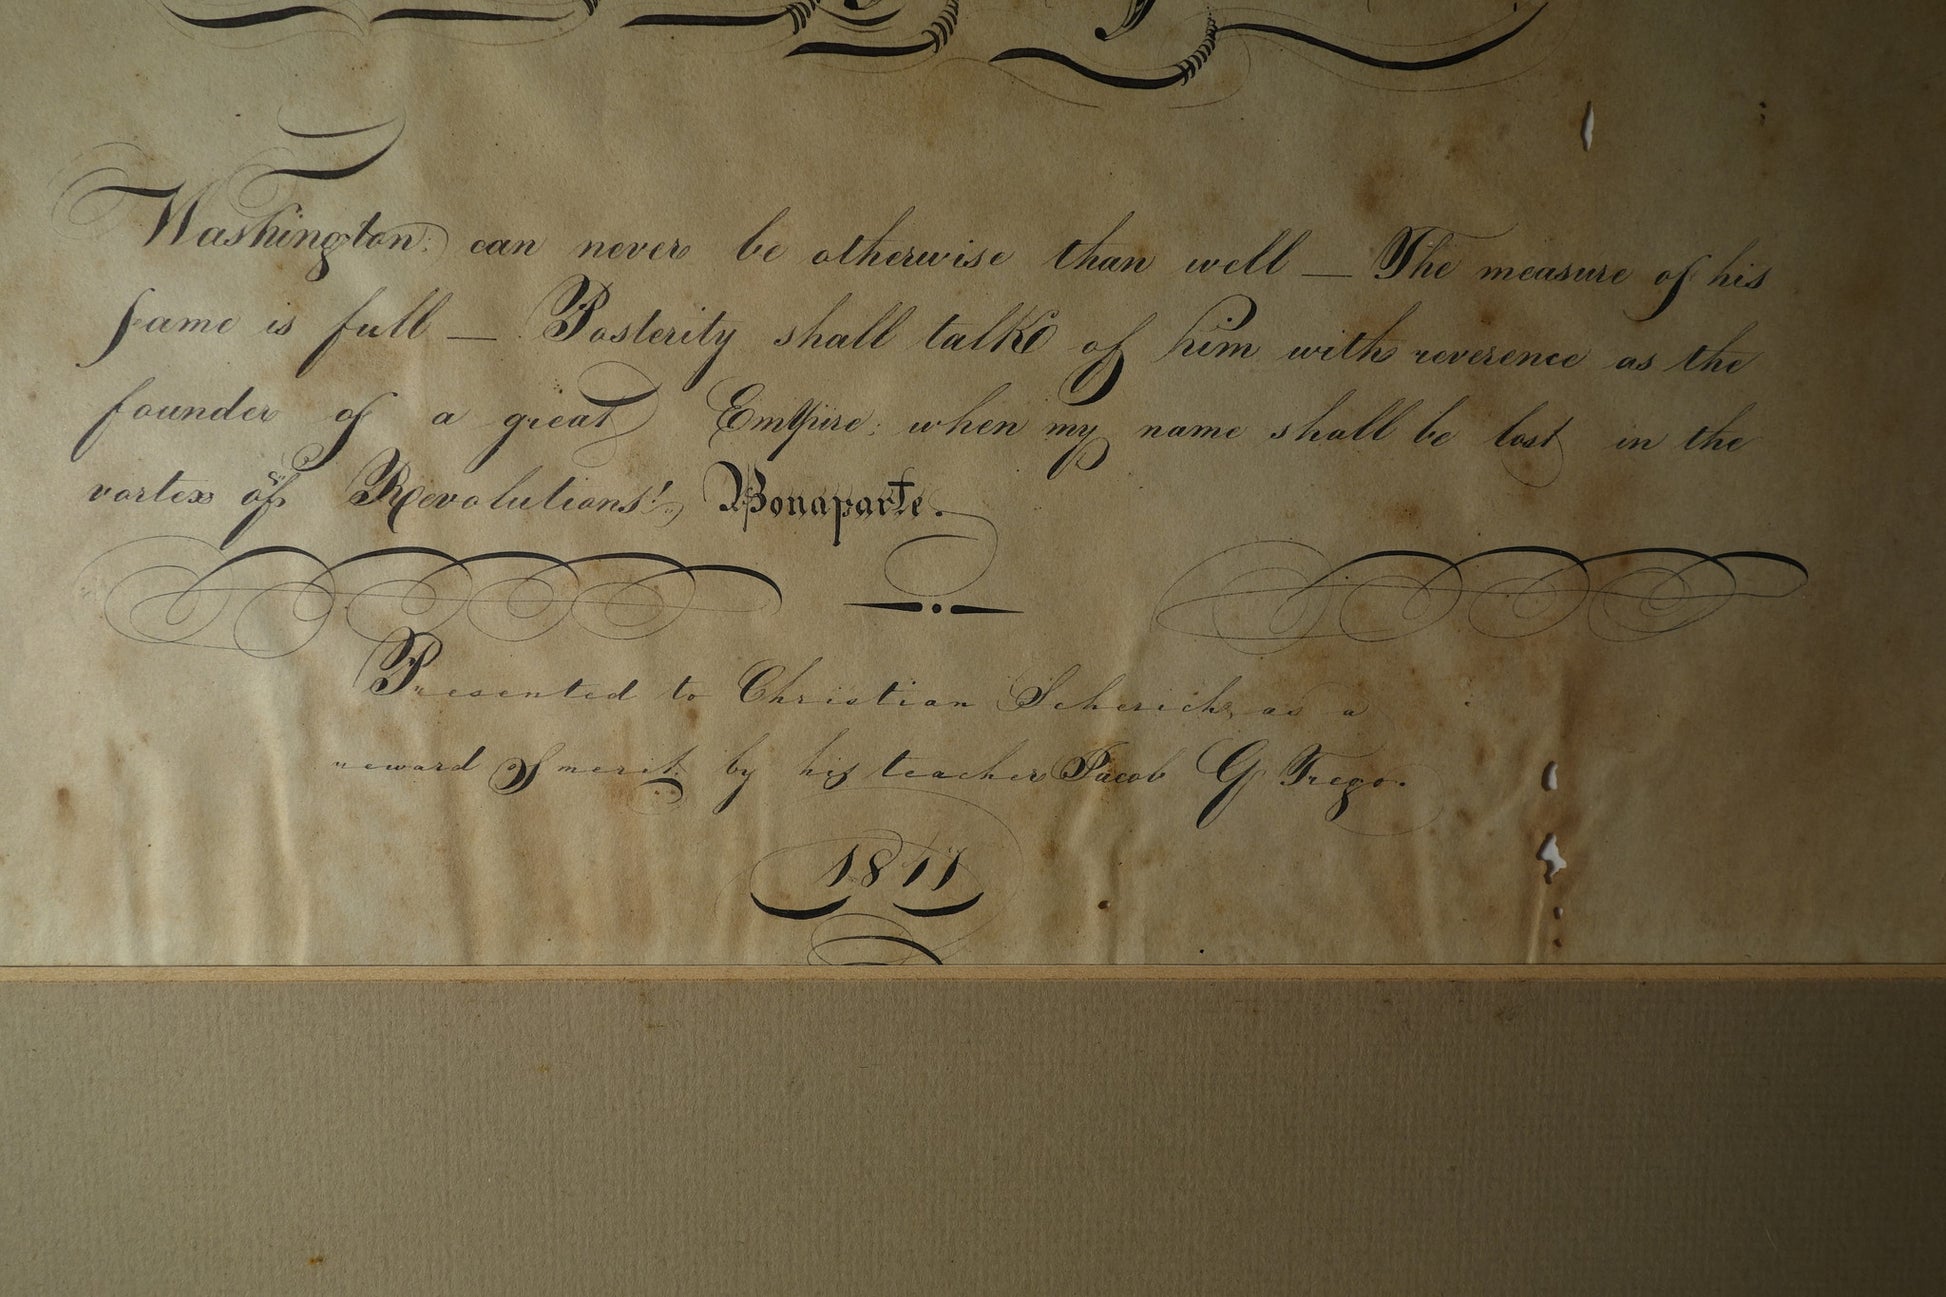 Washington: can never be otherwise than well — The measure of his
fame is full — Posterity shall talk of him with reverence as the
founder of a great Empire; when my name shall be lost in the
vortex of Revolutions! Bonaparte.
Presented to Christian Scherich, as a
reward of merit by his teacher Jacob G Trego.
1811